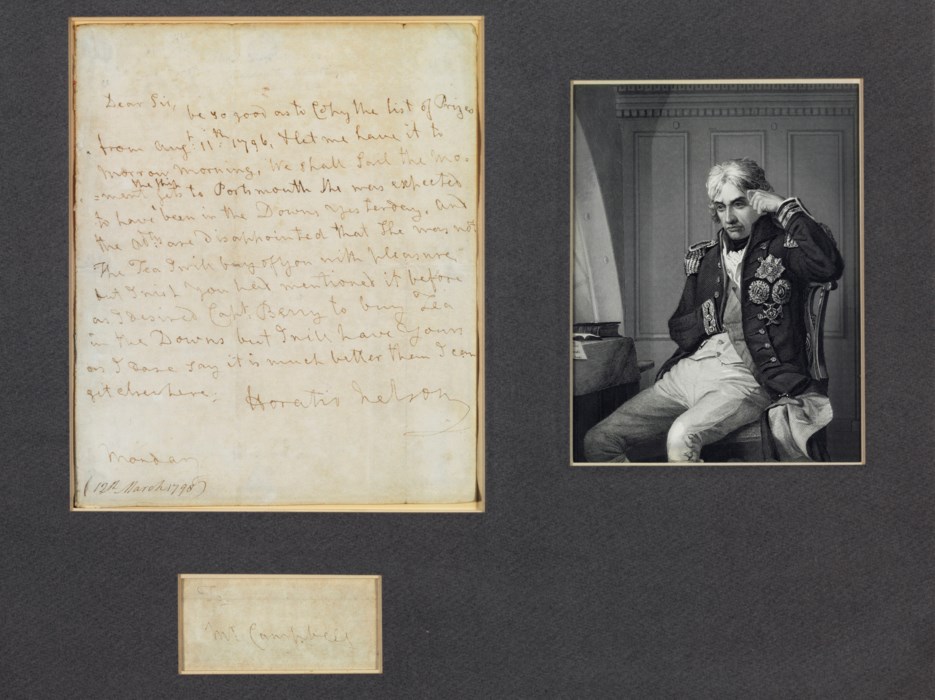 Dear Sir,
be so good as to Copy the list of Prizes
from Augt. 11th. 1796, & let me have it to
morrow Morning, We shall Sail the Mo-
=ment the Ship gets to Portsmouth She was expected
to have been in the Downs yesterday, and
the are disappointed that She was not
The Tea I will buy of you with pleasure
but I wish you had mentioned it before
as I desired Capt. Berry to buy Tea
in the Downs but I will have Yours
as I dare say it is much better then I can
get elsewhere,
Horatio Nelson
Monday
(12th. March 1798)
To
Mr. Campbell